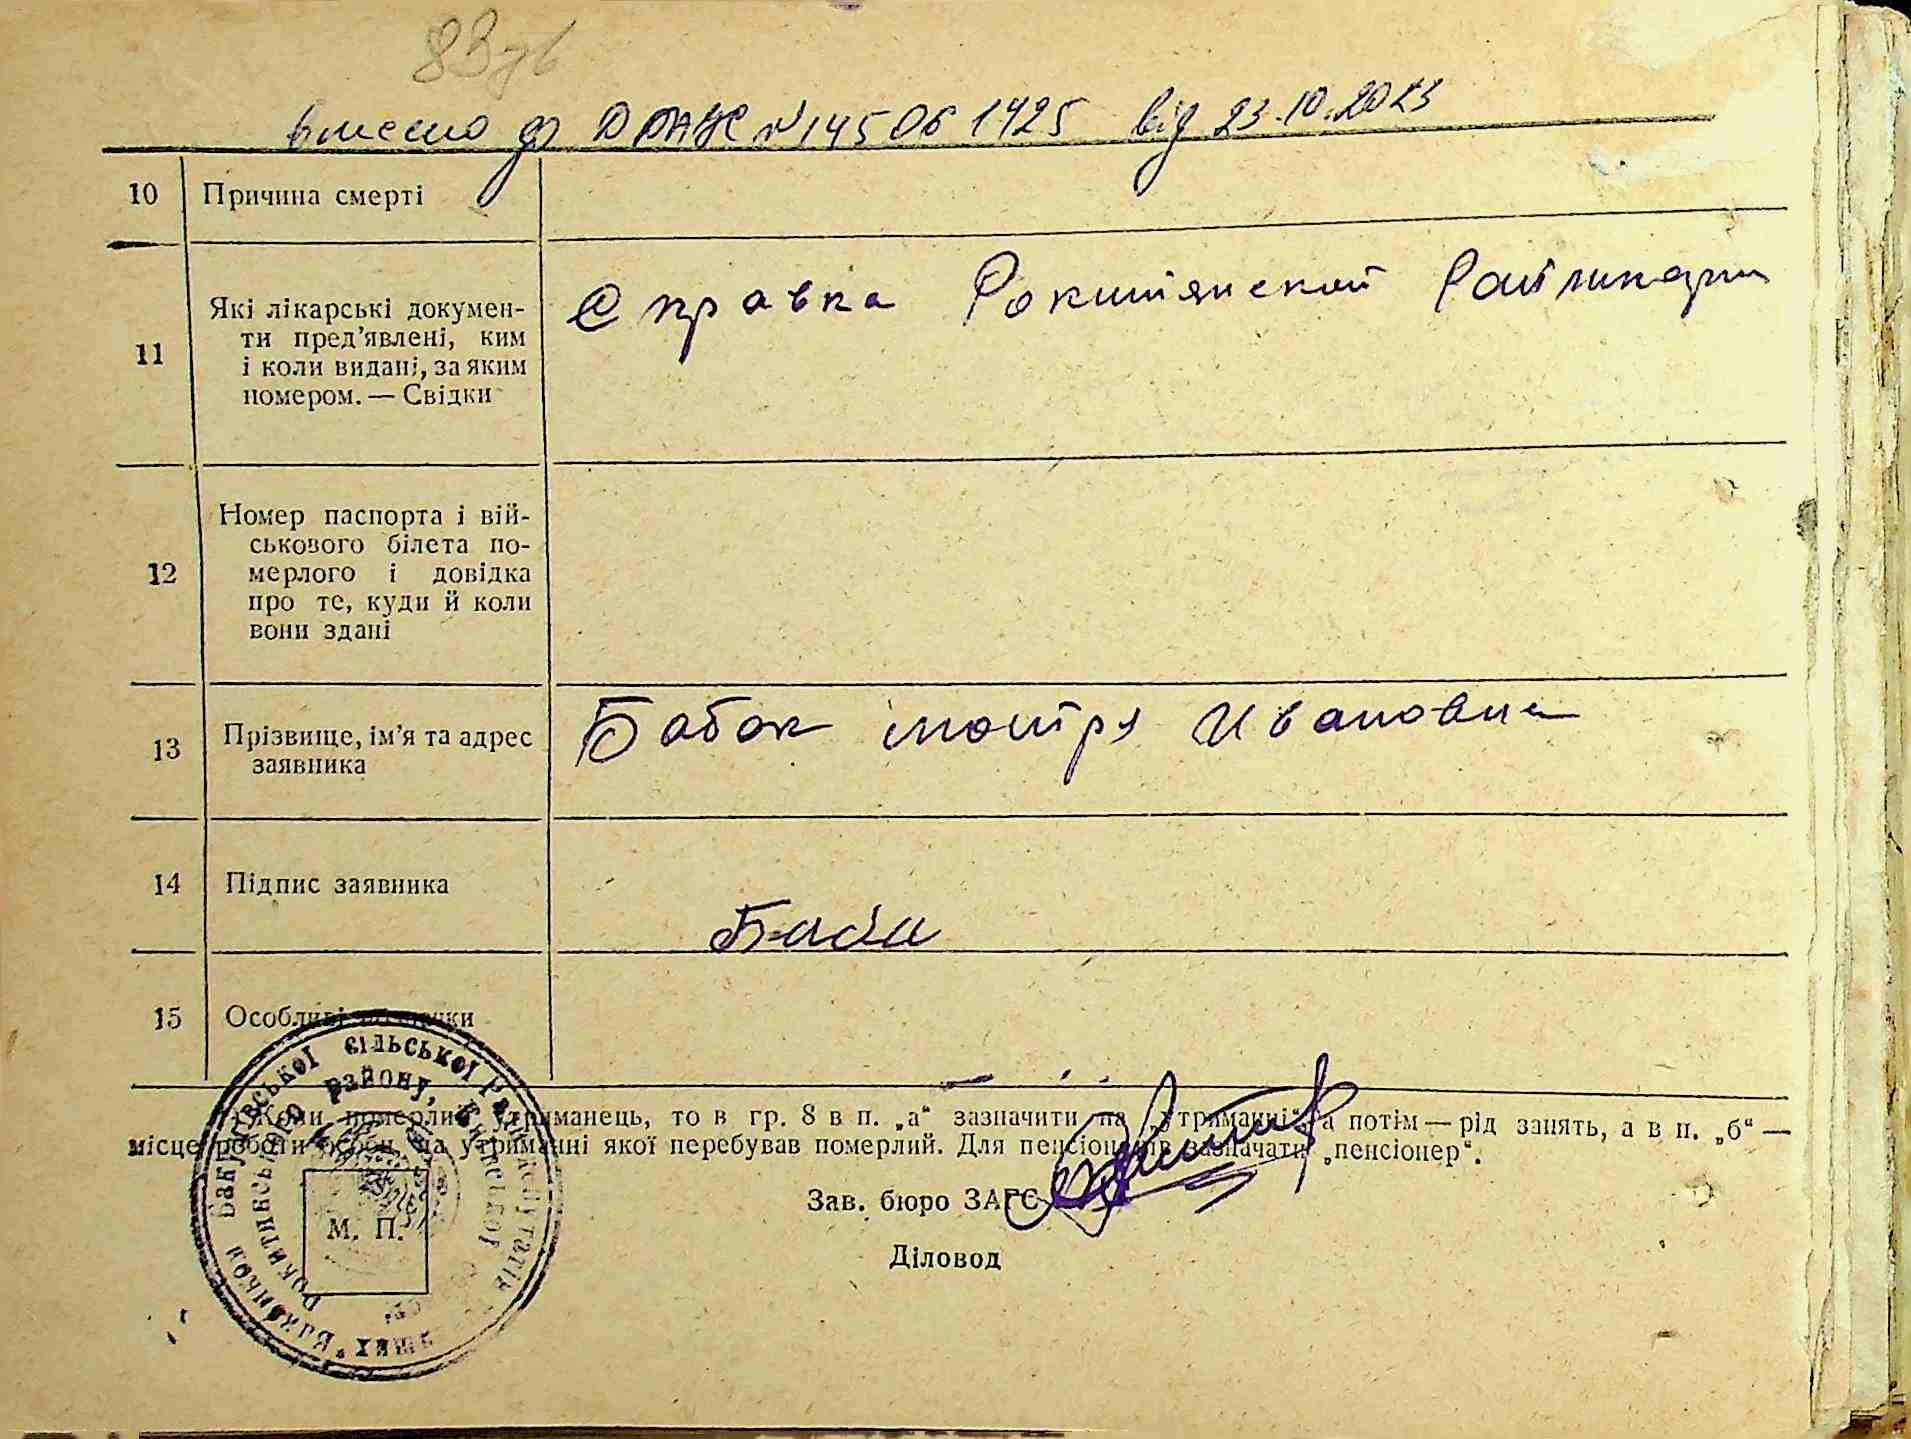 83зв
внесено до ДРАЦС №145061425 від 23.10.2013
10 Причина смерті
11 Які лікарські докумен-
ти пред'явлені, ким
і коли видані, за яким
номером. — Свідки
Справка Рокитянской Райликарни
12 Номер паспорта і вій-
ськового білета по-
мерлого і довідка
про те, куди й коли
вони здані
13 Прізвище, ім'я та адрес
заявника
Бабак мотря Ивановна
14 Підпис заявника
Баба
15 Особливі
Коли померлий утриманець, то в гр. 8 в п. „а“ зазначити на „утриманні“, а потім — рід занять, а в п. „б“ —
місце роботи особи, на утриманні якої перебував померлий. Для пенсіонерів зазначати „пенсіонер“.
Зав. бюро ЗАГС
Діловод
М. П.
сільської Ради депутатів
Рокитянського району, Київської